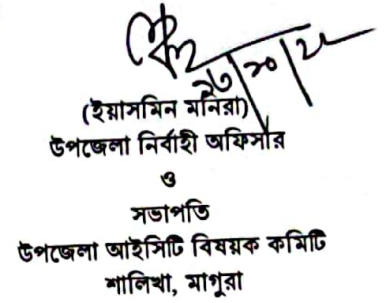 (ইয়াসমিন মনিরা)
উপজেলা নির্বাহী অফিসার
ও
সভাপতি
উপজেলা আইসিটি বিষয়ক কমিটি
শালিখা, মাগুরা